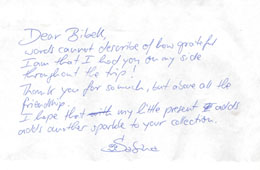 Dear Bibell,
words cannot descrive of how grateful
I am that I had you on my side
throughout the trip!
Thank you for so much, but above all the
friendship.
I hope that my little present adds
adds another sparkle to your colection.
Sabina